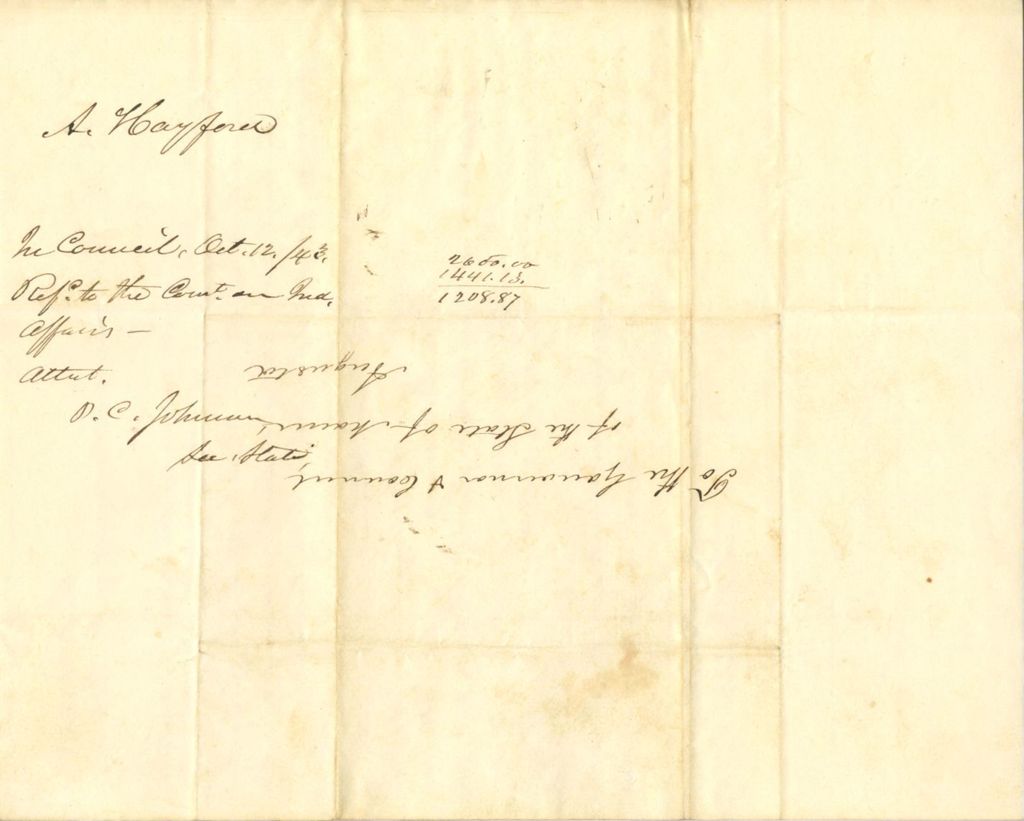 A. Hayford
In Council, Oct. 12. /43.
Refd. to the Comt. on Ind.
Affairs —
Attest.
P. C. Johnson
Sec. State
2650.00
1441.13.
1208.87
To the Governor & Council,
of the State of Maine
Augusta